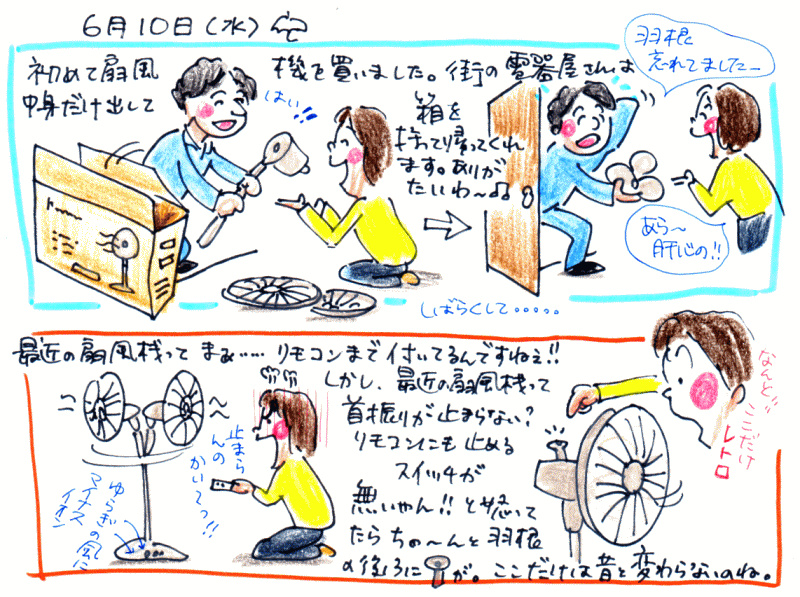 6月10日(水)
初めて扇風機を買いました。街の電器屋さんは
中身だけ出して
箱を
持って帰ってくれ
ます。ありが
たいわ〜♫
はい!!
羽根
忘れてました〜
あら〜
肝心の!!
しばらくして・・・・・
最近の扇風機って まぁ…… リモコンまで付いてるんですねぇ!!
しかし、最近の扇風機って
首振りが止まらない?
リモコンにも止める
スイッチが
無いやん!! と怒って
たら ちゃ〜んと羽根
の後ろに が。ここだけは昔と変わらないのね。
止まら
んの
かいてっ!!
ゆらぎの風に
マイナス
イオン
なんと!!
ここだけ
レトロ